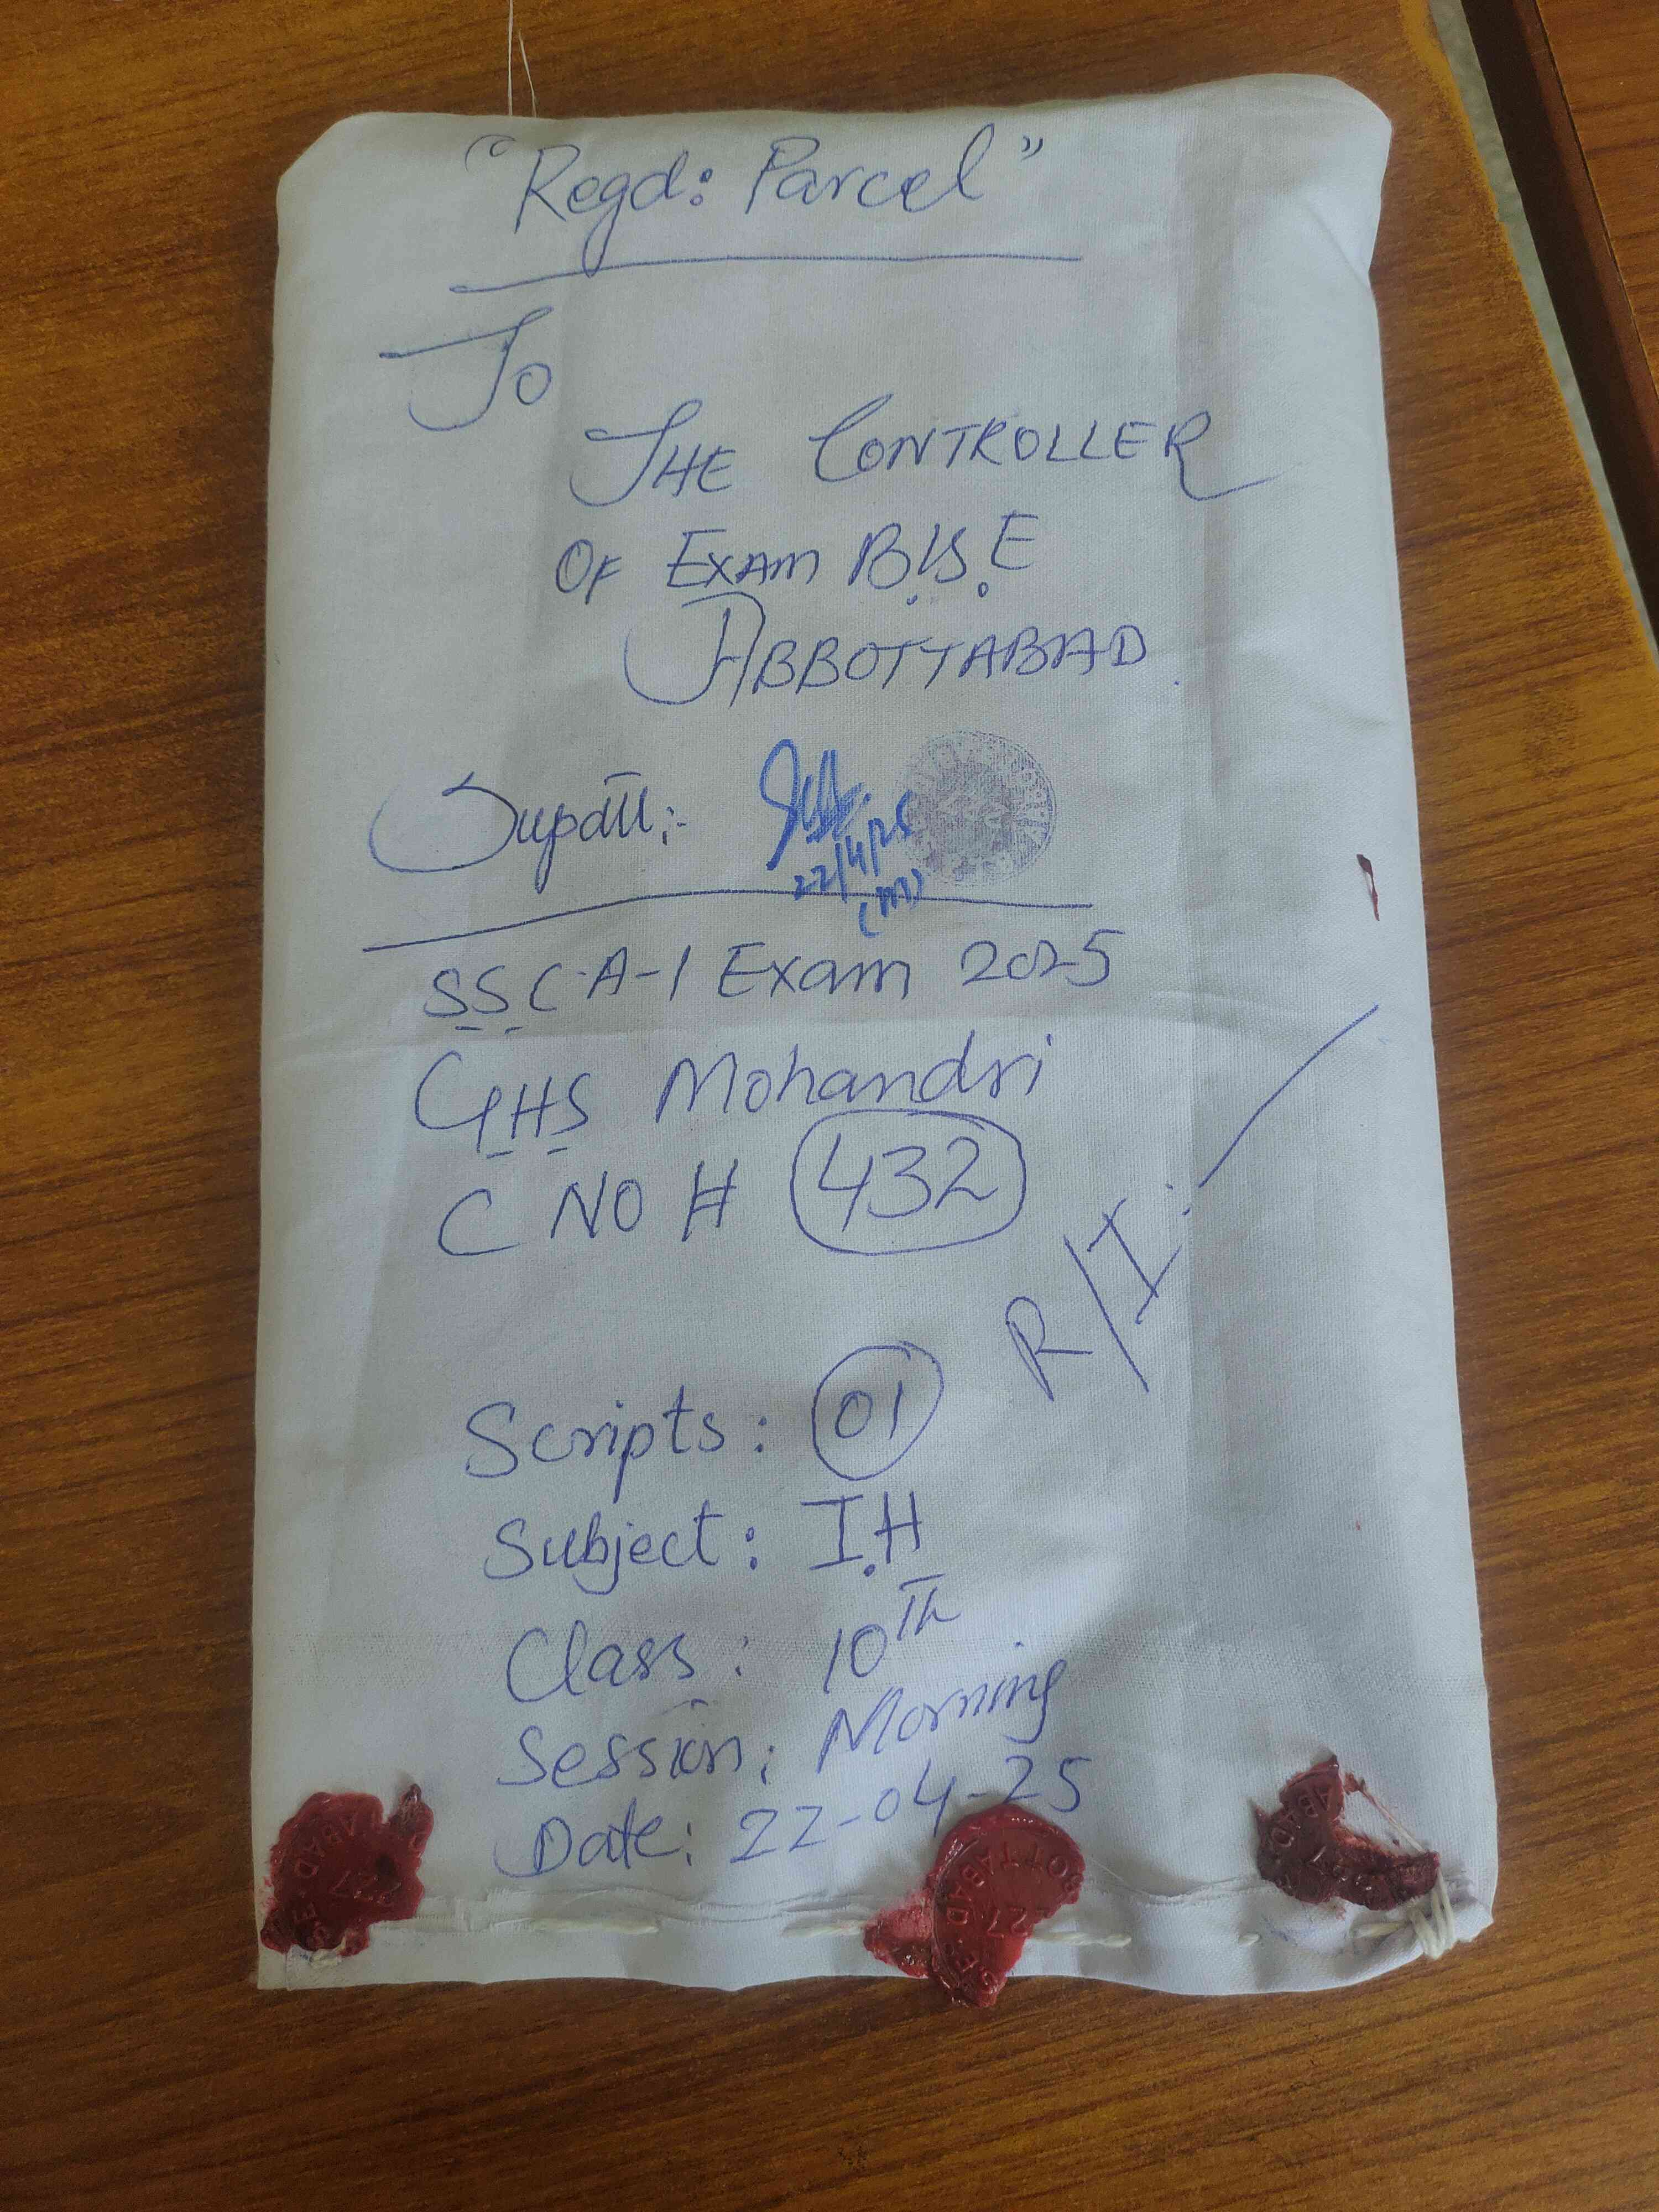 "Regd: Parcel"
To
THE CONTROLLER
OF EXAM B.I.S.E
ABBOTTABAD
Supdtt:-
22/4/25
(M)
SSC-A-I Exam 2025
GHS Mohandri
C NO # 432
R/I.
Scripts: 01
Subject: I.H
Class: 10Th
Session: Morning
Date: 22-04-25
ABAD
227
BOTTABAD
227
ABAD